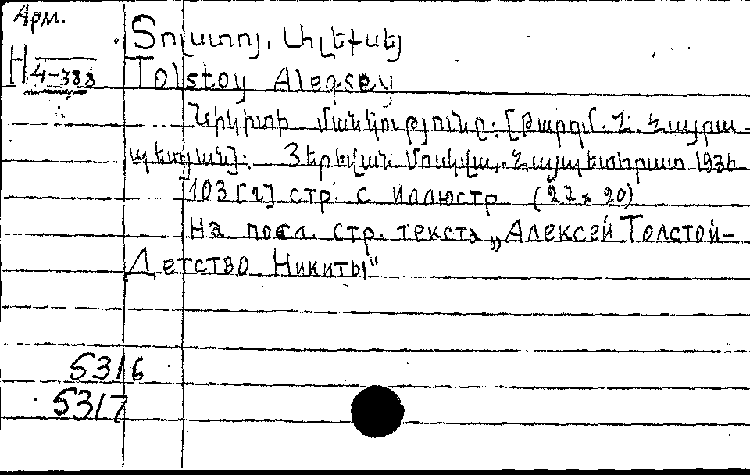 Арм.
Տոլստոյ, Ալեքսեյ
H 4-388
Tolstoy Aleqsey
Նիկիտի մանկությունը: [Թարգմ. Հ. Հայրա
պետյան]: Յերեվան Մոսկվա, Հայպետհրատ 193
103 [1] стр. с иллюстр (27 x 20)
На посл. стр. текста „Алексей Толстой-
Детство Никиты"
5316
5317